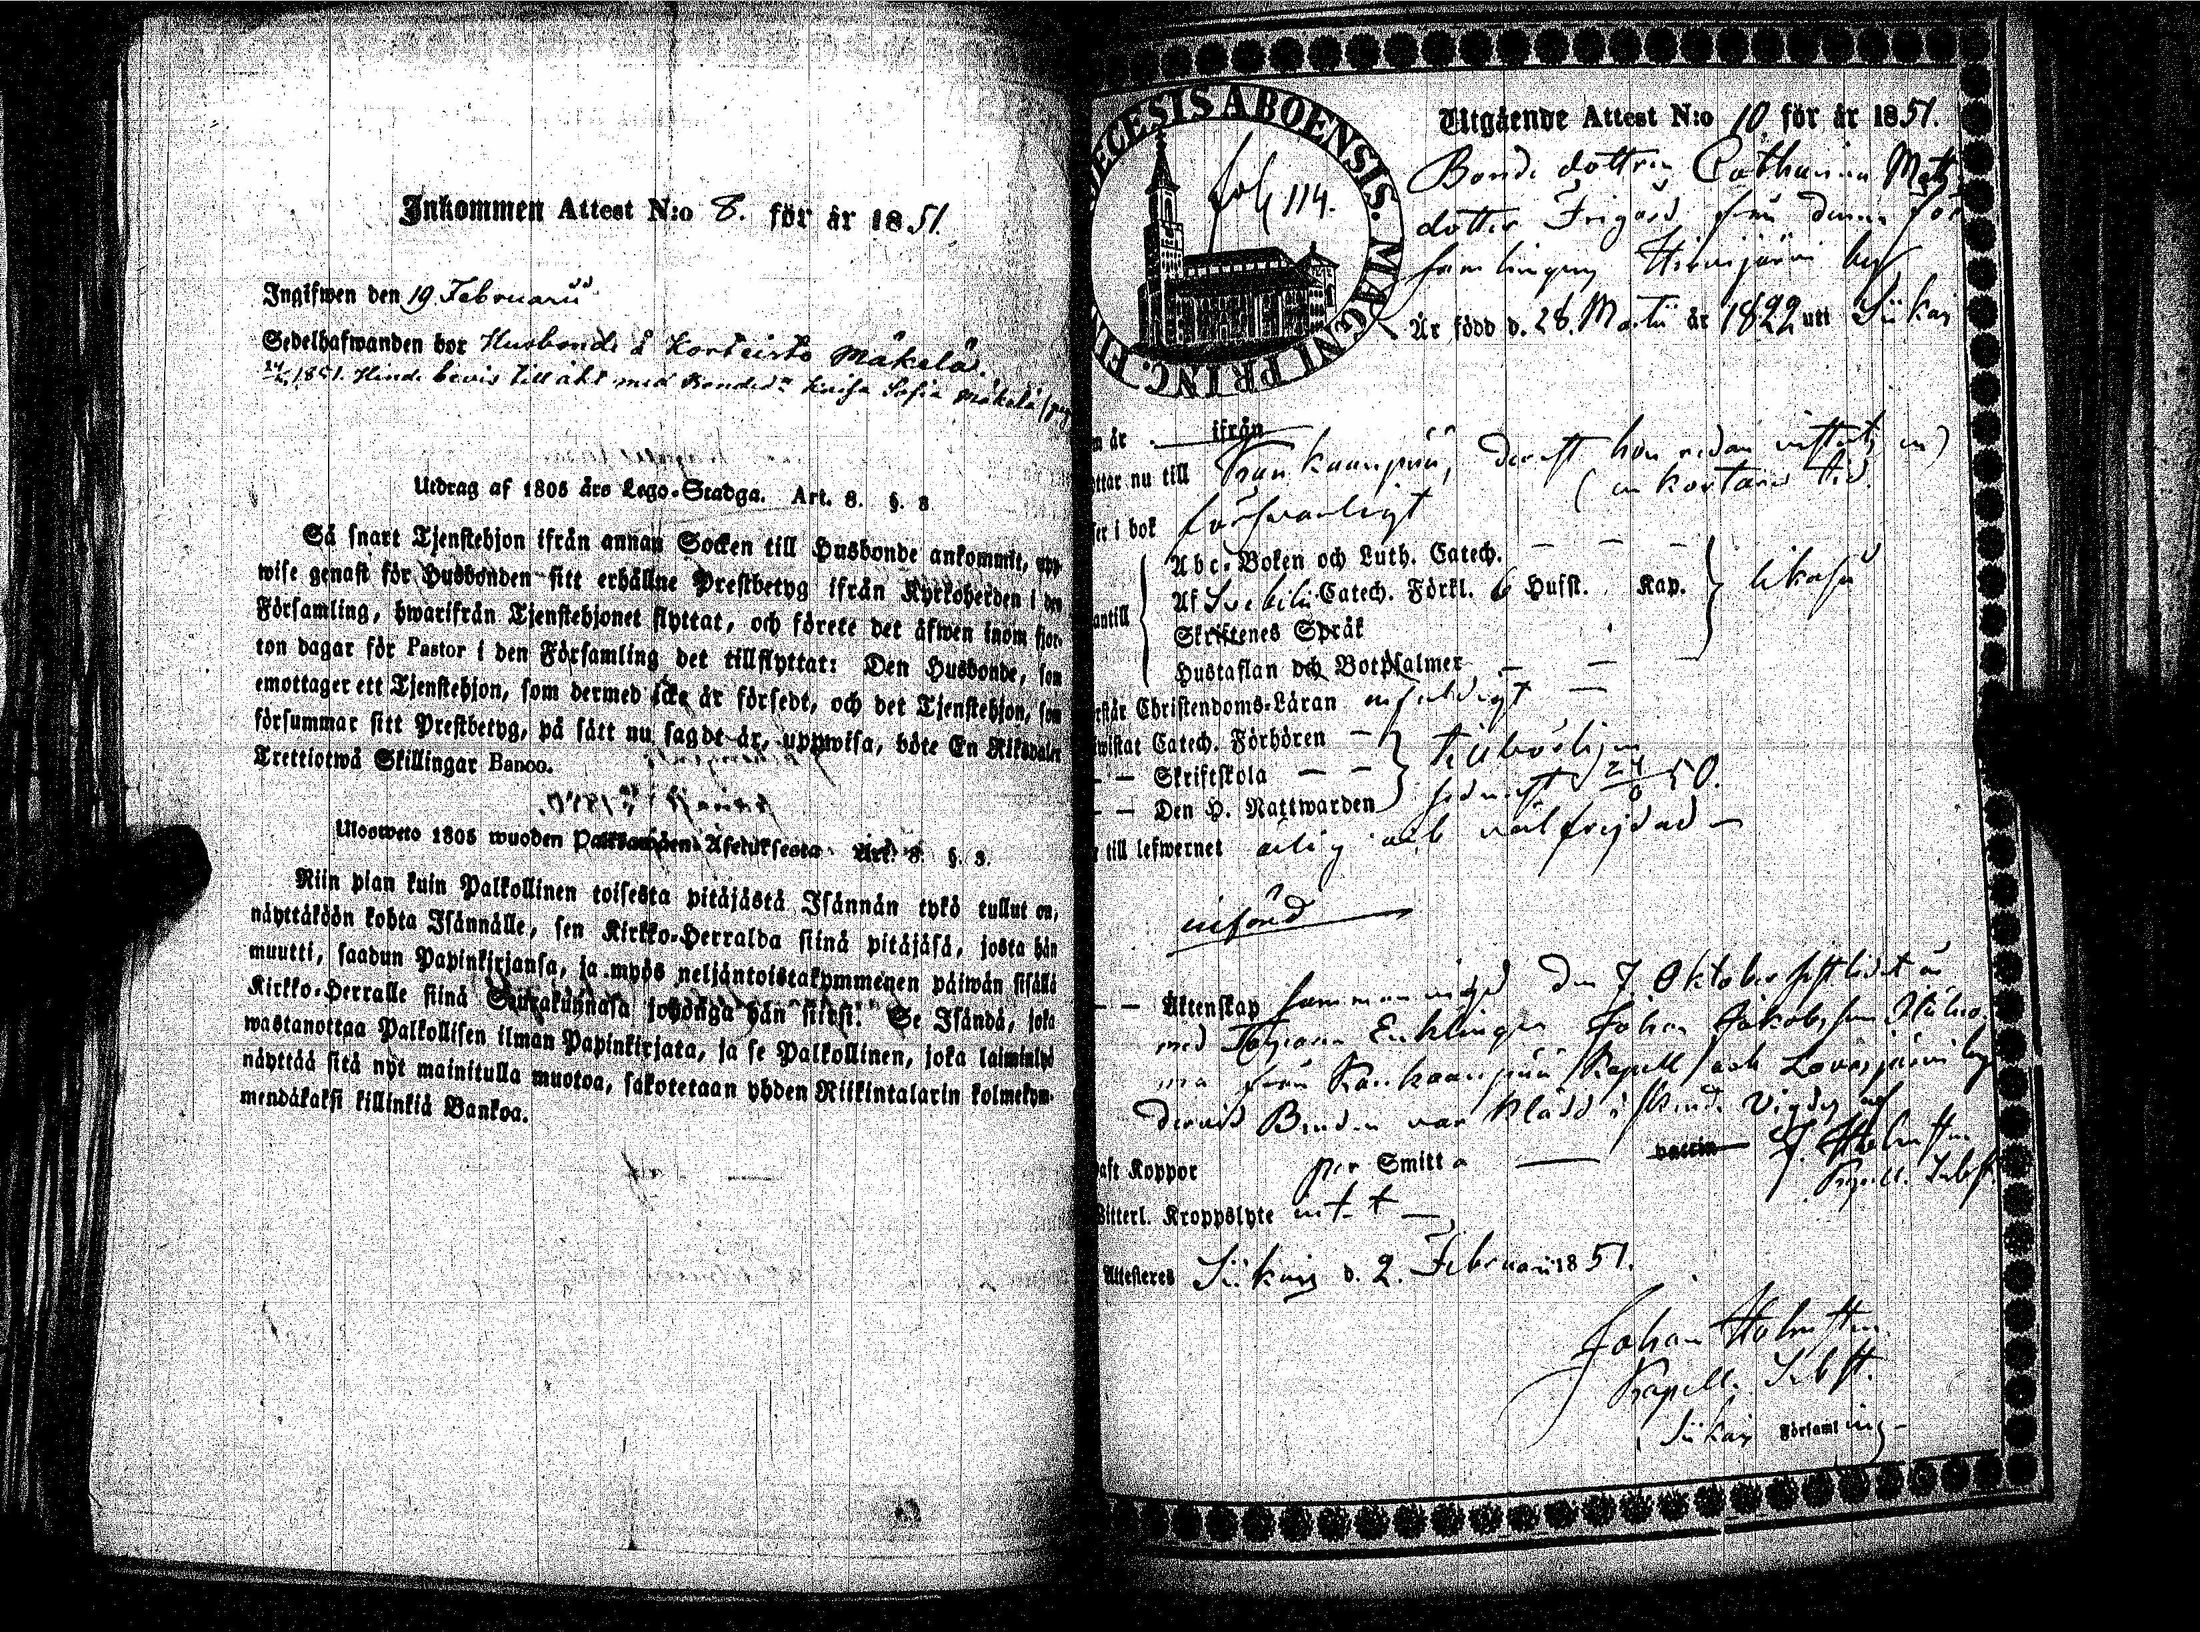 Inkommen Attest N:o 8. för år 1851.
Ingifwen den 19 Februarii
Sedelhafwanden bor Husbonde å Korteisto Mäkelä.
1851. Hinde bevis till äkt med Kaisa Sofia Mäkelä
Utdrag af 1805 års Lego-Stadga. Art. 8. §. 3
Så snart Tjenstehjon ifrån annan Socken till Husbonde ankommit, upp-
wise genast för Husbonden sitt erhållne Prestbetyg ifrån Kyrkoherden i den
Församling, hwarifrån Tjenstehjonet flyttat, och förete det äfwen inom fjor-
ton dagar för Pastor i den Församling det tillflyttat: Den Husbonde, som
emottager ett Tjenstehjon, som dermed icke är försedt, och det Tjenstehjon, som
försummar sitt Prestbetyg, på sätt nu sagdt är, uppwisa, böte En Riksdaler
Trettiotwå Skillingar Banco.
Uloswето 1805 wuoden Palkkawäen-Asetuksesta Art. 8. §. 3.
Niin pian kuin Palkollinen toisesta pitäjästä Isännän tykö tullut on,
näyttäköön kohta Isännälle, sen Kirkko-Herralda siinä pitäjäsä, josta hän
muutti, saadun Papinkirjansa, ja myös neljäntoistakymmenen päiwän sisällä
Kirkko-Herralle siinä Seurakunnasa johonga hän siirsi. Se Isändä, joka
wastanottaa Palkollisen ilman Papinkirjata, ja se Palkollinen, joka laiminlyö
näyttää sitä nyt mainitulla muotoa, sakotetaan yhden Riikintalarin kolmekym-
mendäkaksi killinkiä Bankoa.
DIECESIS ABOENSIS. MAGNI PRINC. FIN
fol 114.
Utgående Attest N:o 10 för år 1851.
Bonde dottren Catharina Matts
dotter Frigård från denna för
samlingens Hirvijärvi by
Är född d. 28. Martii år 1822 uti Siikais
n år ifrån
ttar nu till Kankaanpää, derest hon redan vistats en
(en kortare tid.
ser i bok försvarligt
Abc-Boken och Luth. Catech.
Af Svebilii Catech. Förkl. 6 Hufst. Kap. } likaså
antill { Skriftenes Språk
Hustaflan och Botpsalmer
rstår Christendoms-Läran enfaldigt
wistat Catech. Förhören } tillbörligen
Skriftskola
Den H. Nattwarden sednast 24/6 50.
till lefwernet ärlig och väl frejdad
införd
Äktenskap sammanvigd den 7 Oktober sistlidet år
med Enklingen Johan Jakobsson
från Kankaanpää Kapell och Lovasjärvi by
dervid Bruden var klädd i Vigdes af
J. Holmsten
aft Koppor per Smitta vaccin Kapell. Subst.
Witterl. Kroppslyte intet
Attesteres Siikais d. 2. Februarii 1851.
Johan Holmsten
Kapell. Subst.
i Siikais Församling